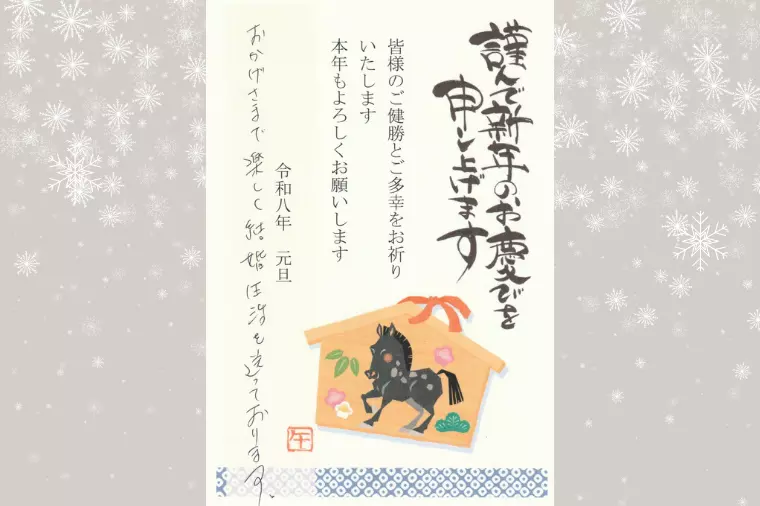 謹んで新年のお慶びを
申し上げます
皆様のご健勝とご多幸をお祈り
いたします
本年もよろしくお願いします
令和八年 元旦
おかげさまで楽しく結婚生活を送っております。
午